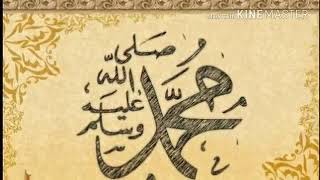 Made with KINEMASTER
محمد
صلى
الله
عليه
وسلم